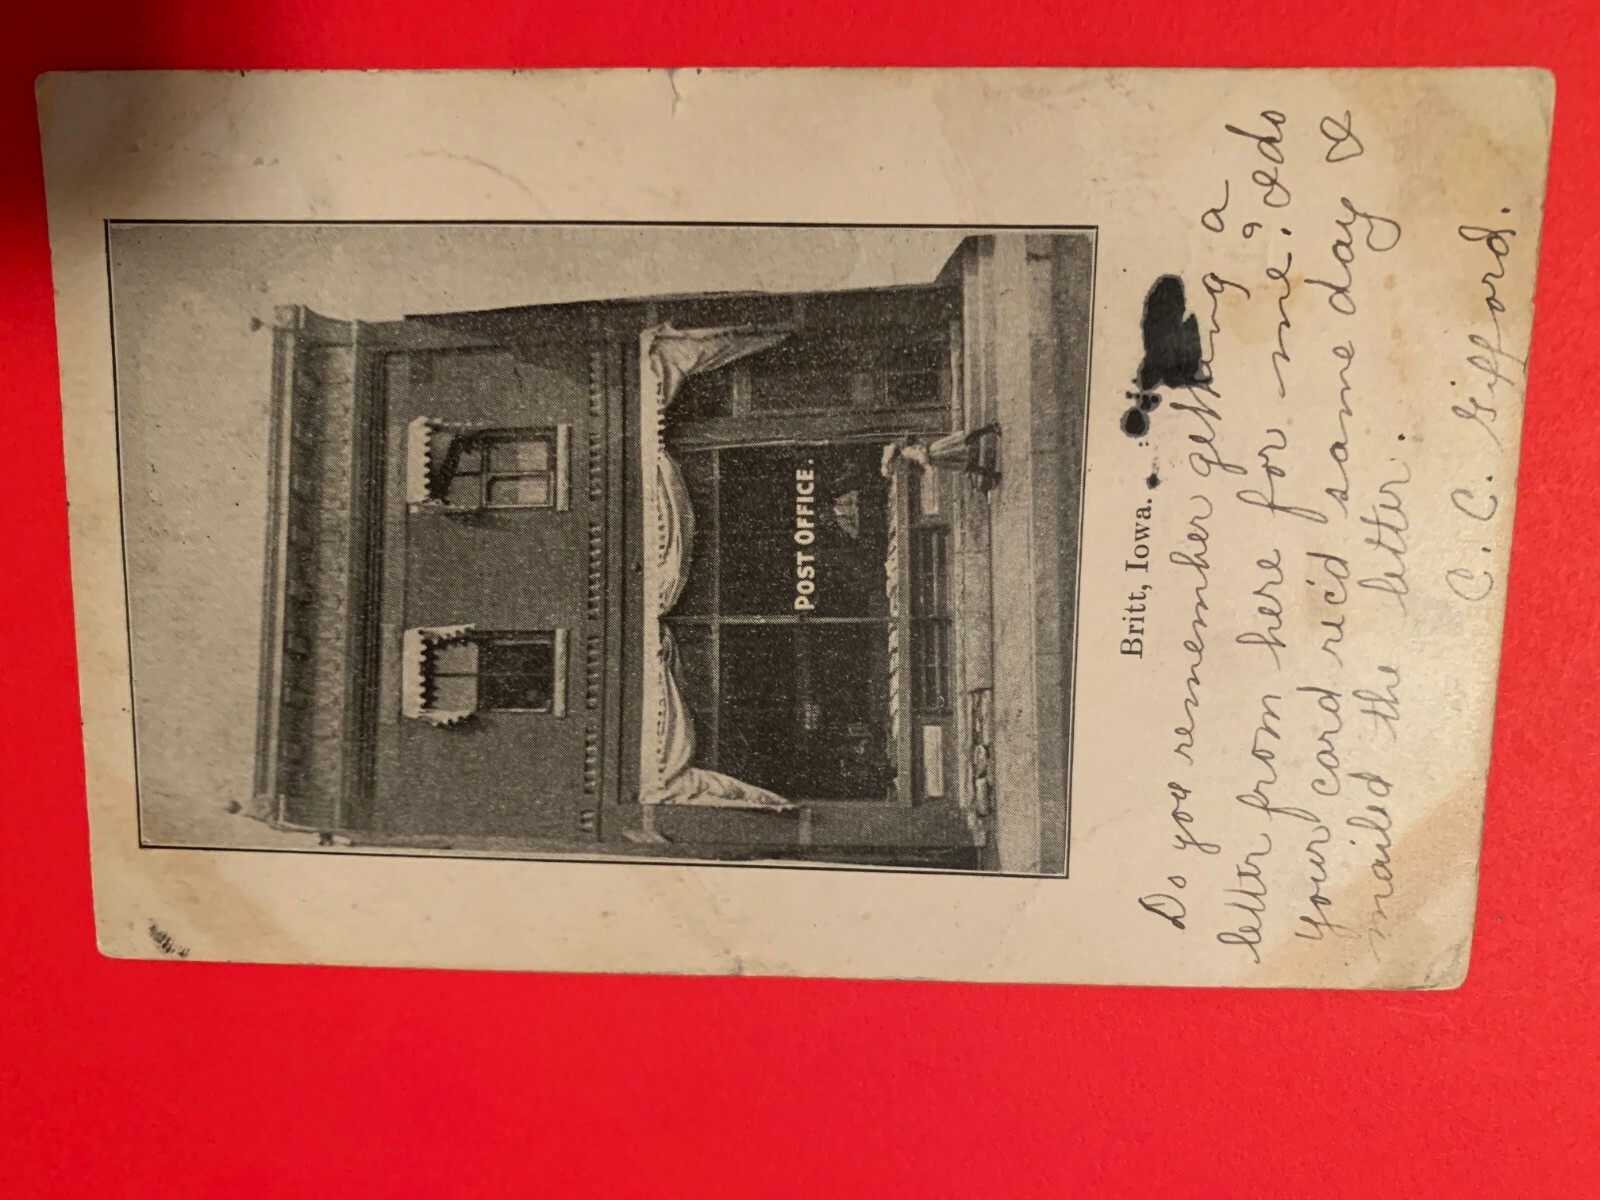 POST OFFICE.
Britt, Iowa.
Do you remember getting a
letter from here for me? I do
your card rec'd same day I
mailed the letter.
C. C. Gifford.